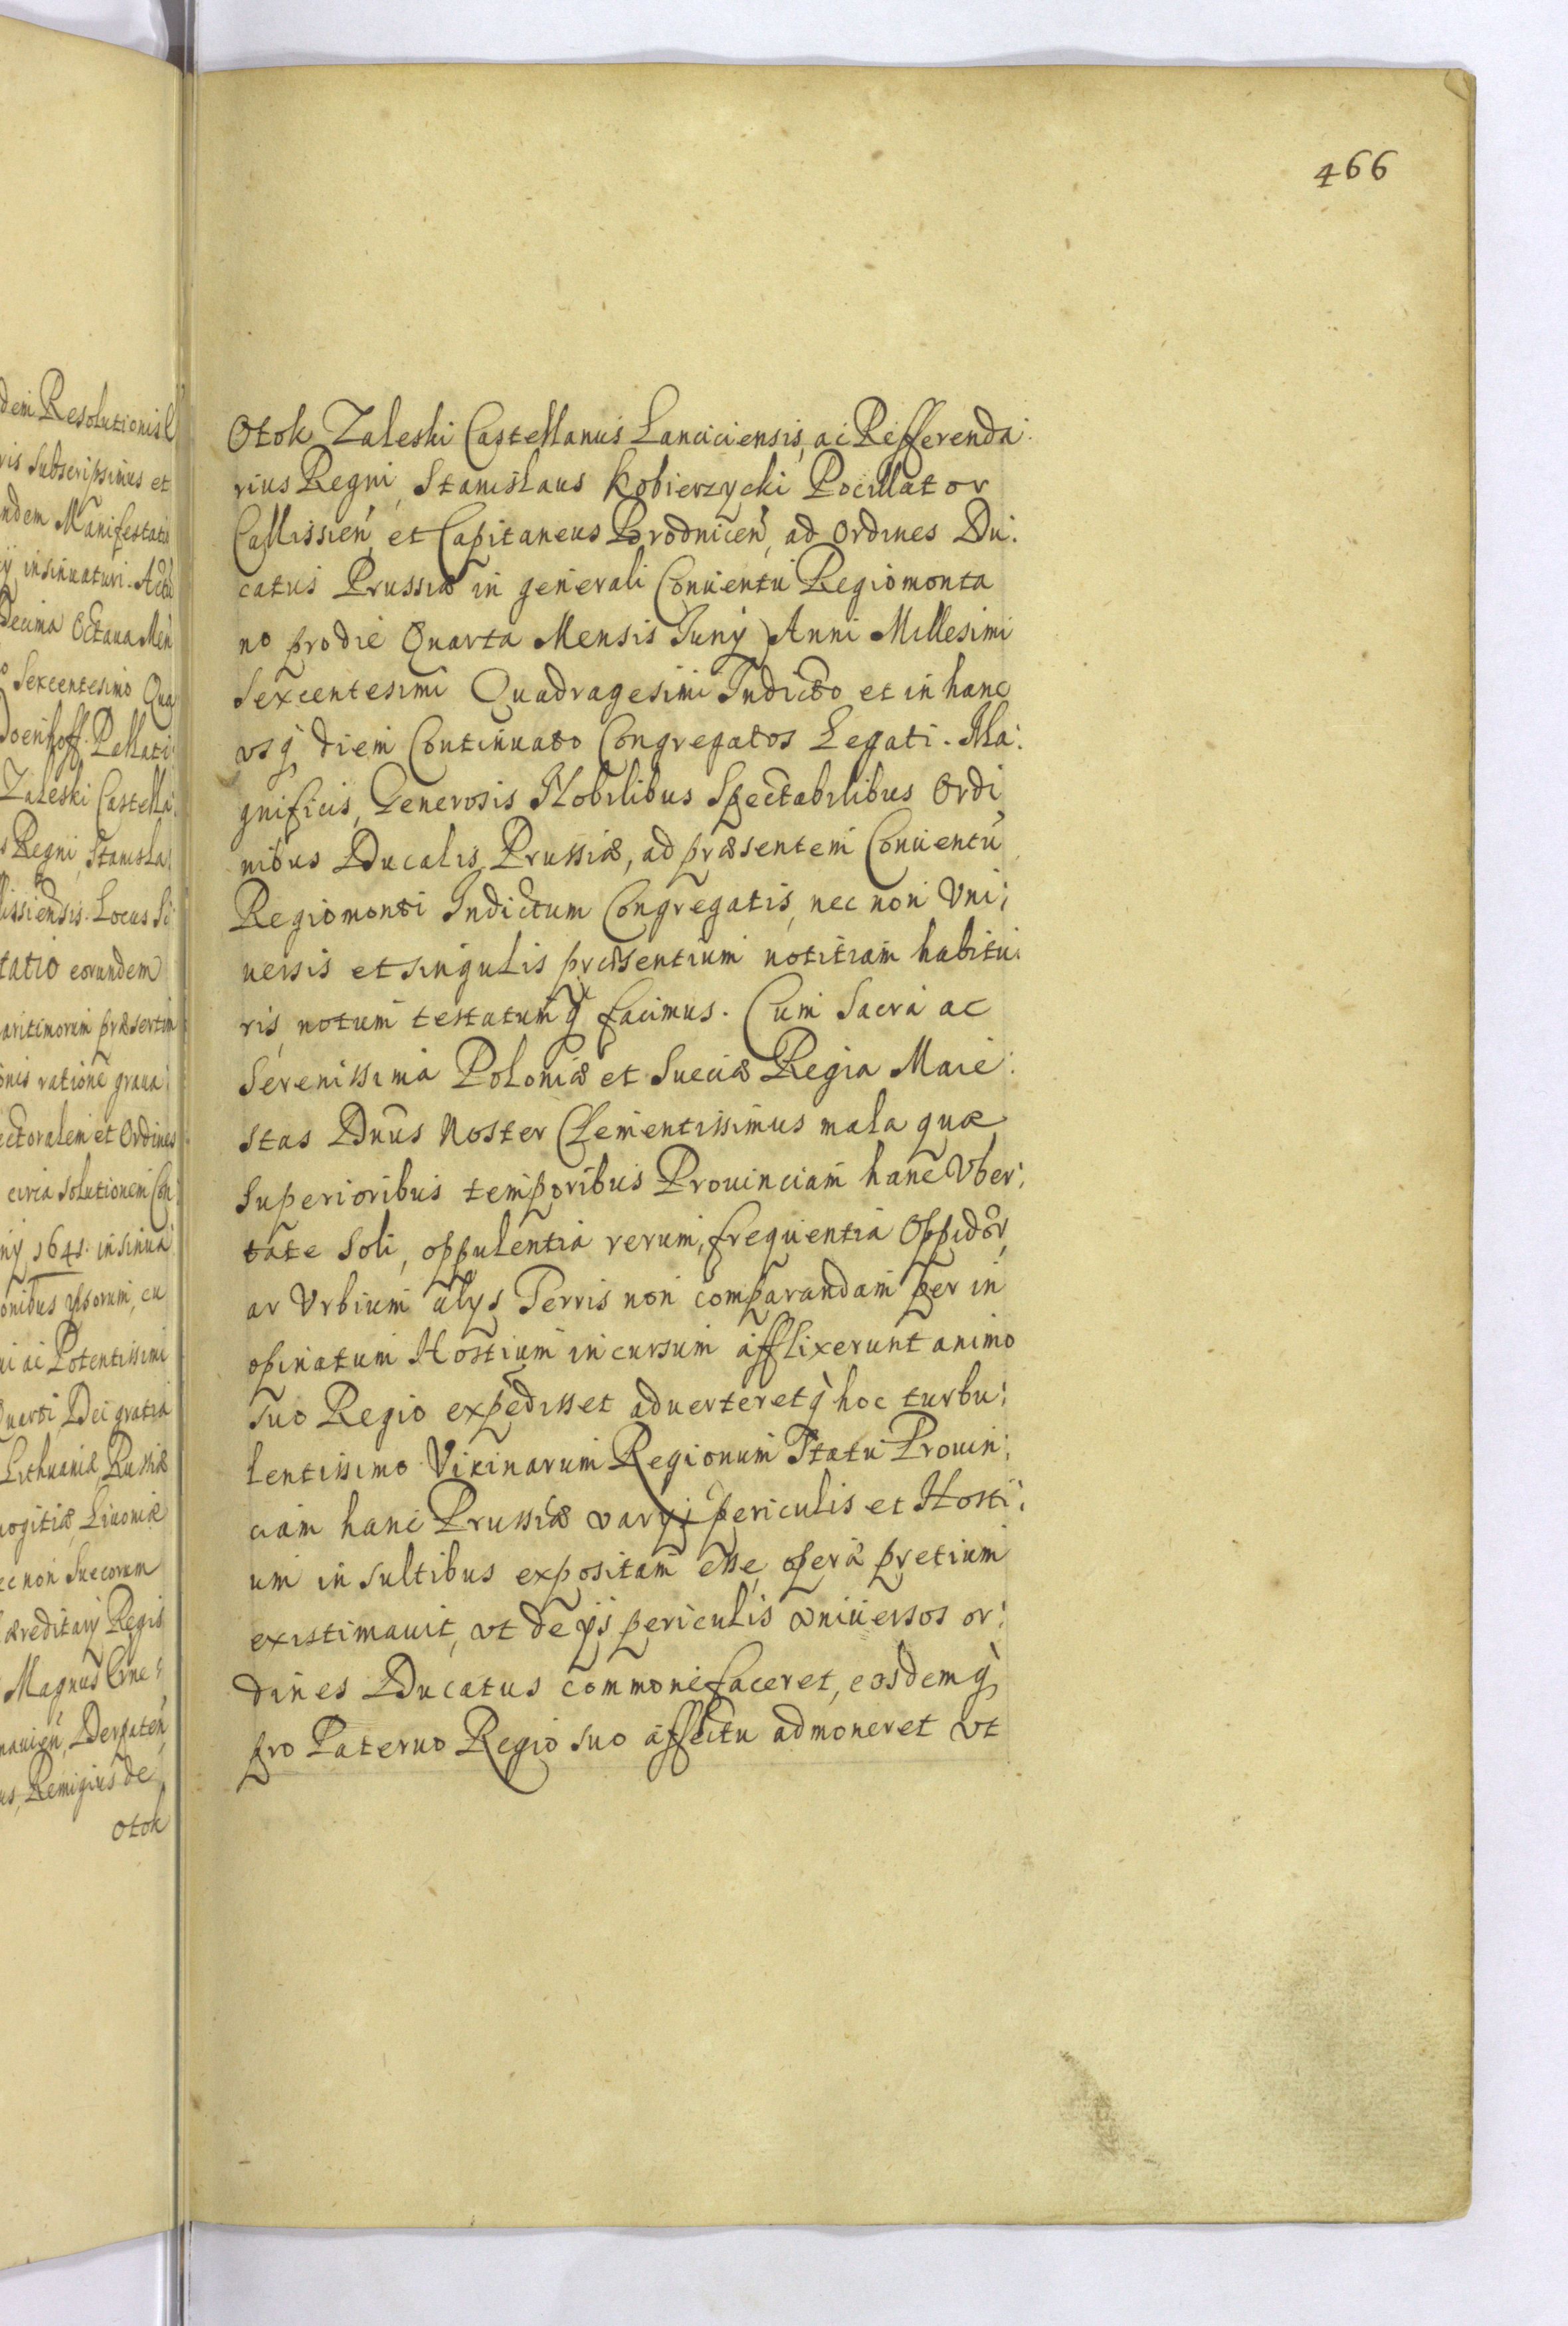 466
dem Resolutionis
ris subscripsimus et
ndem Manifestati
ij insinuaturi. Actū
Decima Octaua Meñ
Sexcentesimo Qua
Doenhoff. Pellati
Zaleski Castella
s Regni, Stanisla
lissiensis. Locus Si
tatio eorundem
aritimorum præsertim
onis ratione graua
ectoralem et Ordines
circa solutionem Con
nij 1641. insinua
onibus ipsorum, cu
ui ac Potentissimi
Quarti Dei gratia
Lithuaniæ Russiæ
nogitiæ, Liuoniæ
ec non Suecorum
æreditarij Regis
Magnus Erne
nauień, Derpateń
us, Remigius de
Otok
Otok Zaleski Castellanus Lanciciensis, ac Refferenda:
rius Regni, Stanislaus Kobierzycki Pocillator
Callissień, et Capitaneus Brodniceń, ad Ordines Du:
catus Prussiæ in generali Conuentu Regiomonta
no pro die Quarta Mensis Junij Anni Millesimi
Sexcentesimi Quadragesimi Indicto et in hanc
vsq diem Continuato Congregatos Legati. Ma:
gnificis, Generosis Nobilibus Spectabilibus Ordi
nibus Ducalis Prussiæ, ad præsentem Conuentū
Regiomonti Indictum Congregatis, nec non Vni:
uersis et singulis præsentium notitiam habitu:
ris, notum testatumq facimus. Cum Sacra ac
Serenissima Poloniæ et Sueciæ Regia Maie:
stas Dnūs Noster Clementissimus mala quæ
superioribus temporibus Prouinciam hanc Vber:
tate soli, oppulentia rerum, frequentia Oppidor,
ar Vrbium alijs Terris non comparandam per in
opinatum Hostium incursum afflixerunt animo
suo Regio expedisset aduerteretq hoc turbu:
lentissimo Vicinarum Regionum Statu Prouin:
ciam hanc Prussiæ varijs periculis et Hosti:
um insultibus expositam esse, opera pretium
existimauit, vt de ijs periculis vniuersos or:
dines Ducatus commonefaceret, eosdemq
pro Paterno Regio suo affectu admoneret vt